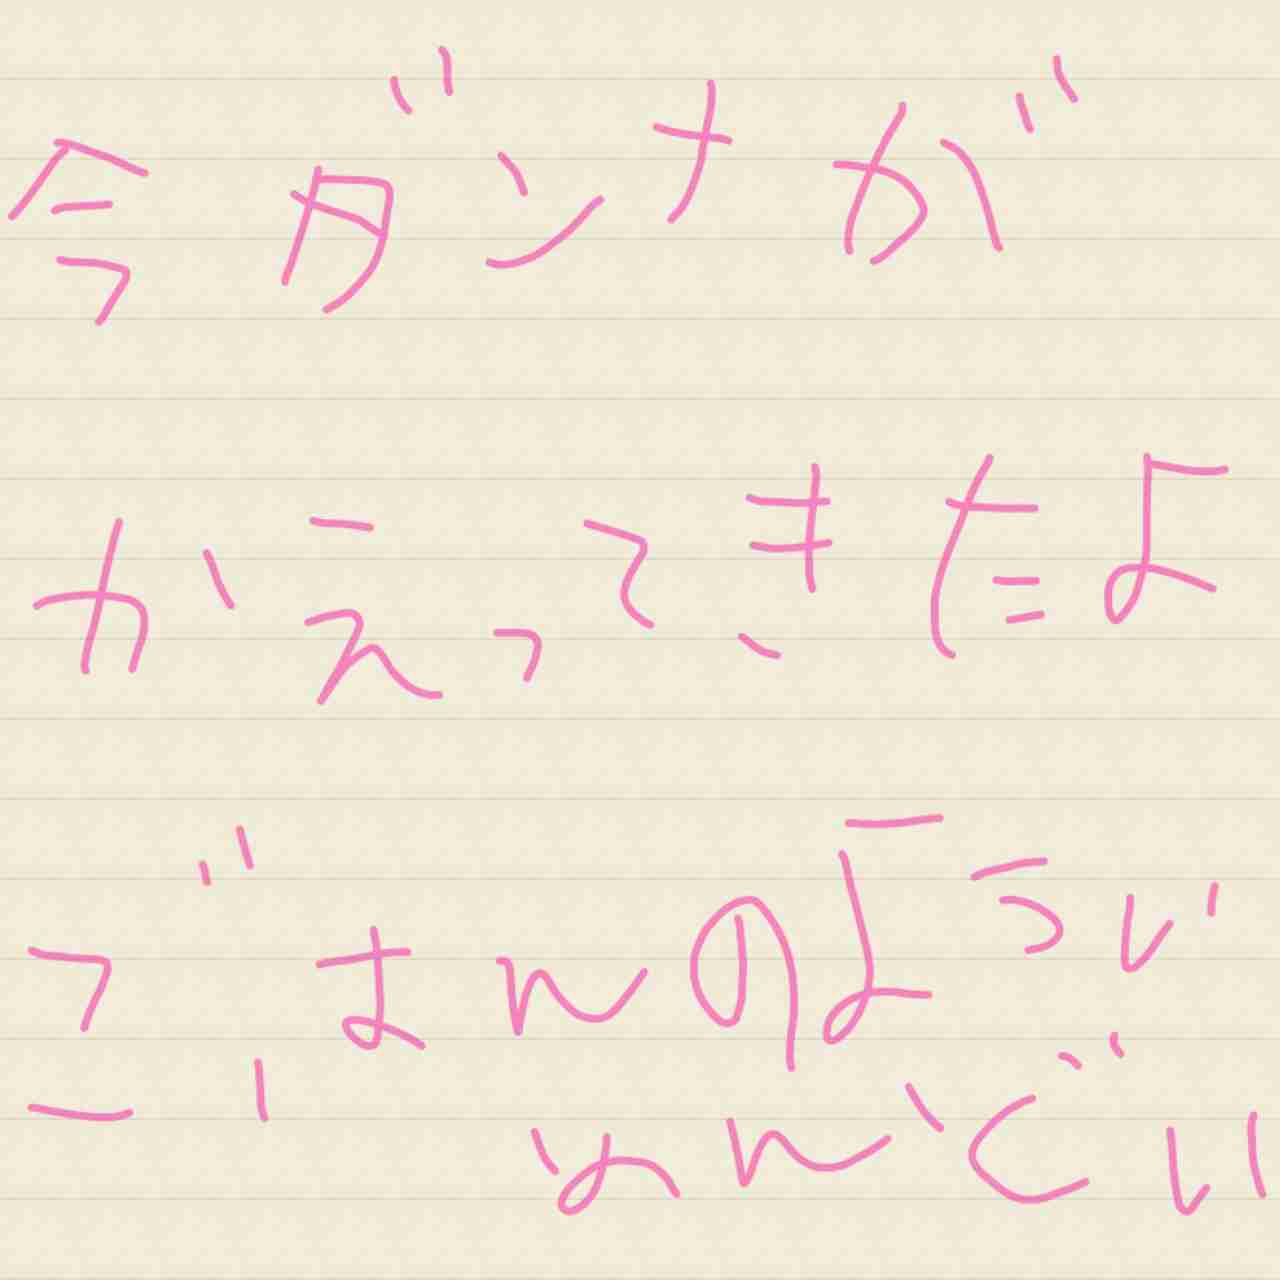 今ダンナが
かえってきたよ
ごはんのようい
めんどい